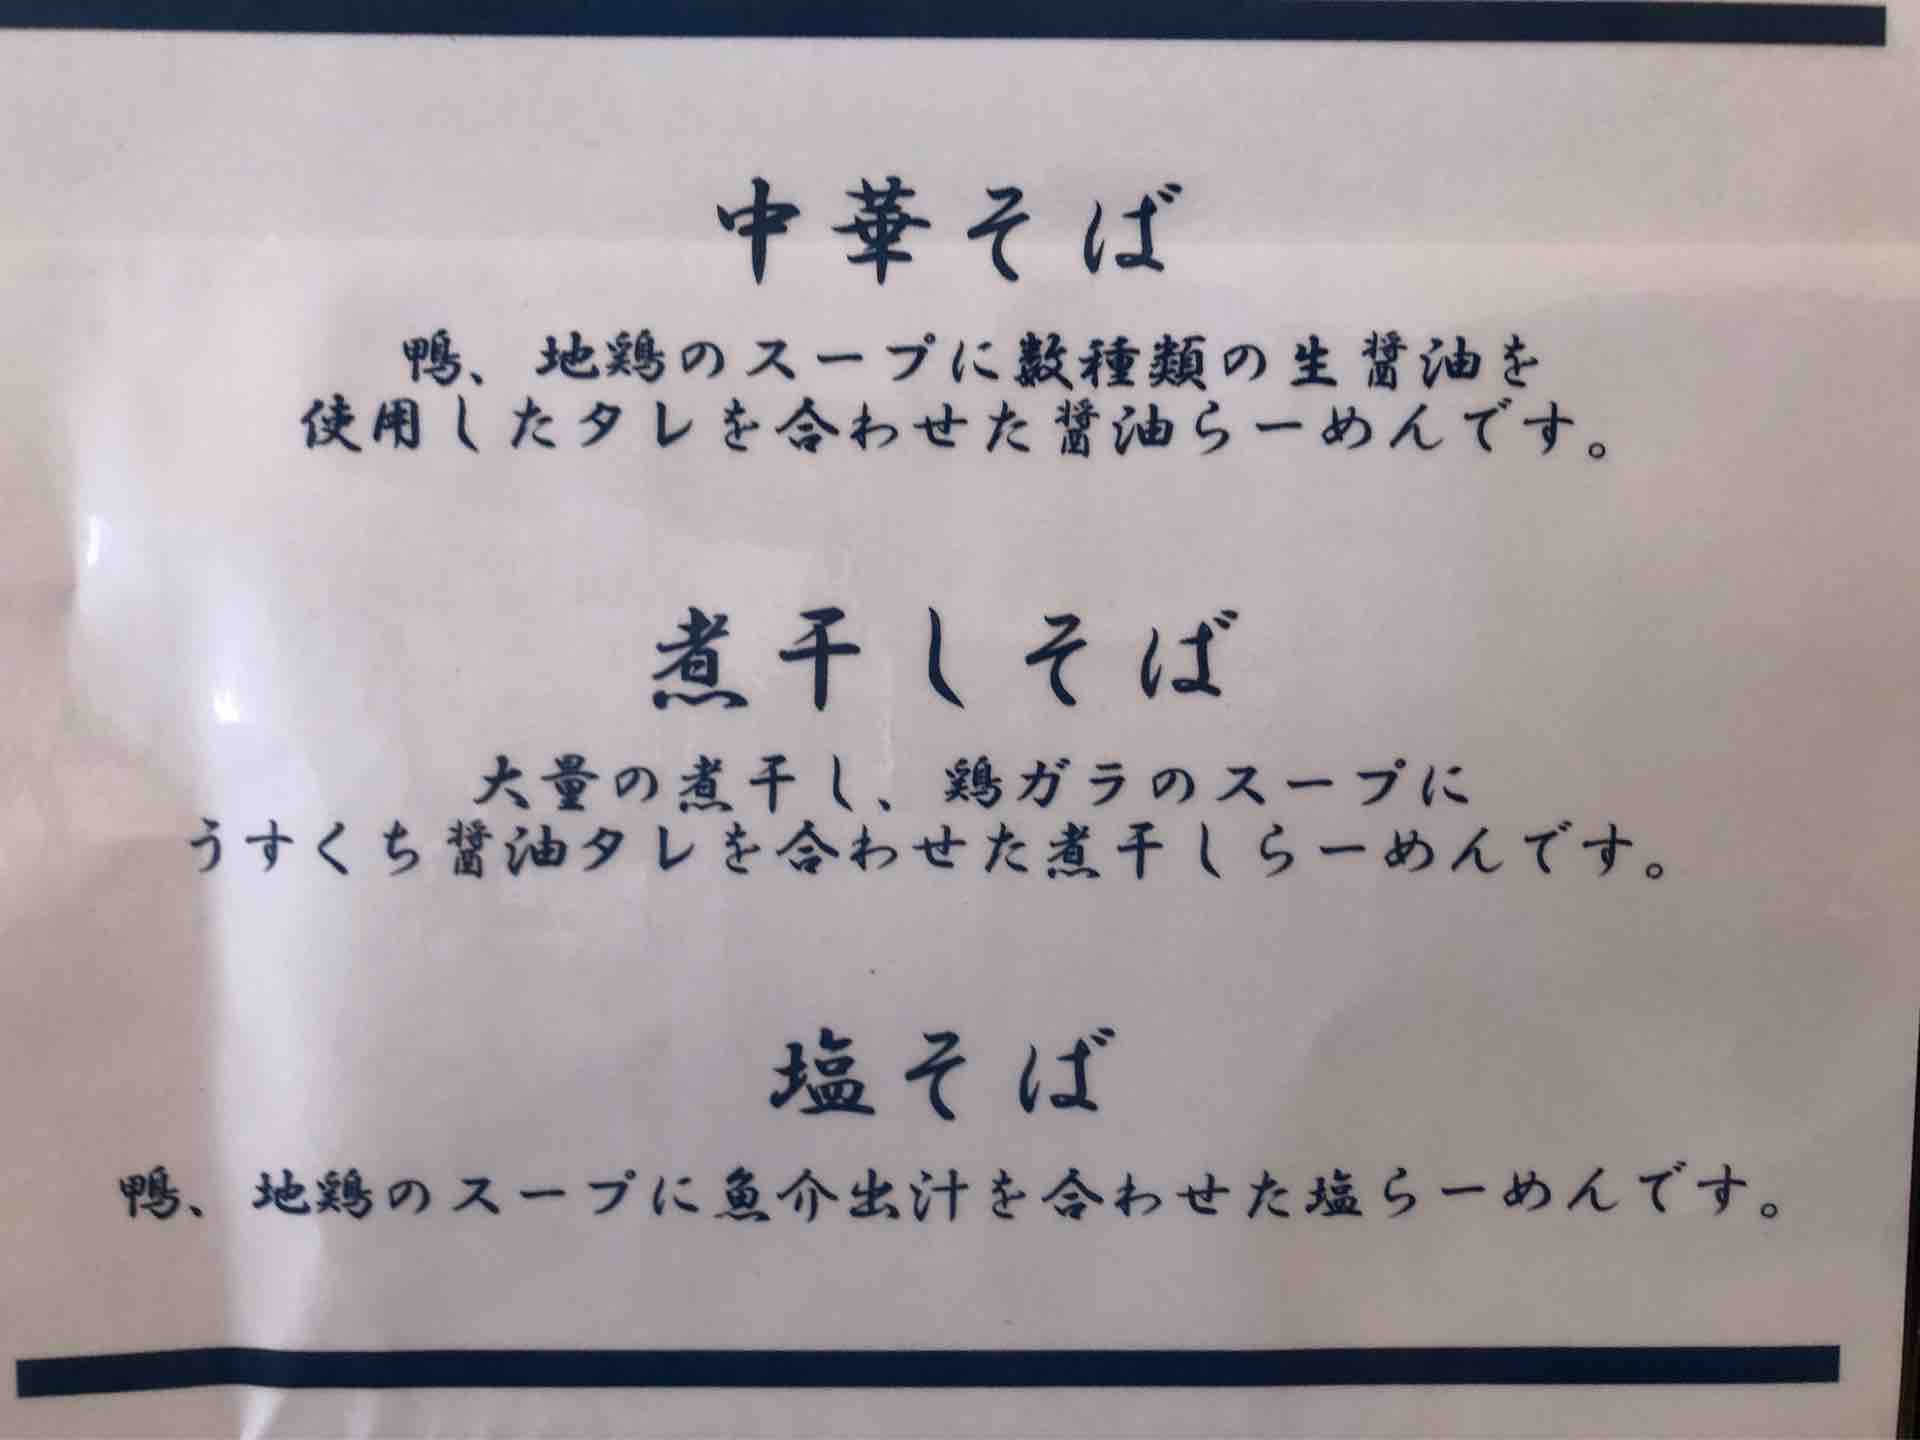 中華そば
鴨、地鶏のスープに数種類の生醤油を
使用したタレを合わせた醤油らーめんです。
煮干しそば
大量の煮干し、鶏ガラのスープに
うすくち醤油タレを合わせた煮干しらーめんです。
塩そば
鴨、地鶏のスープに魚介出汁を合わせた塩らーめんです。